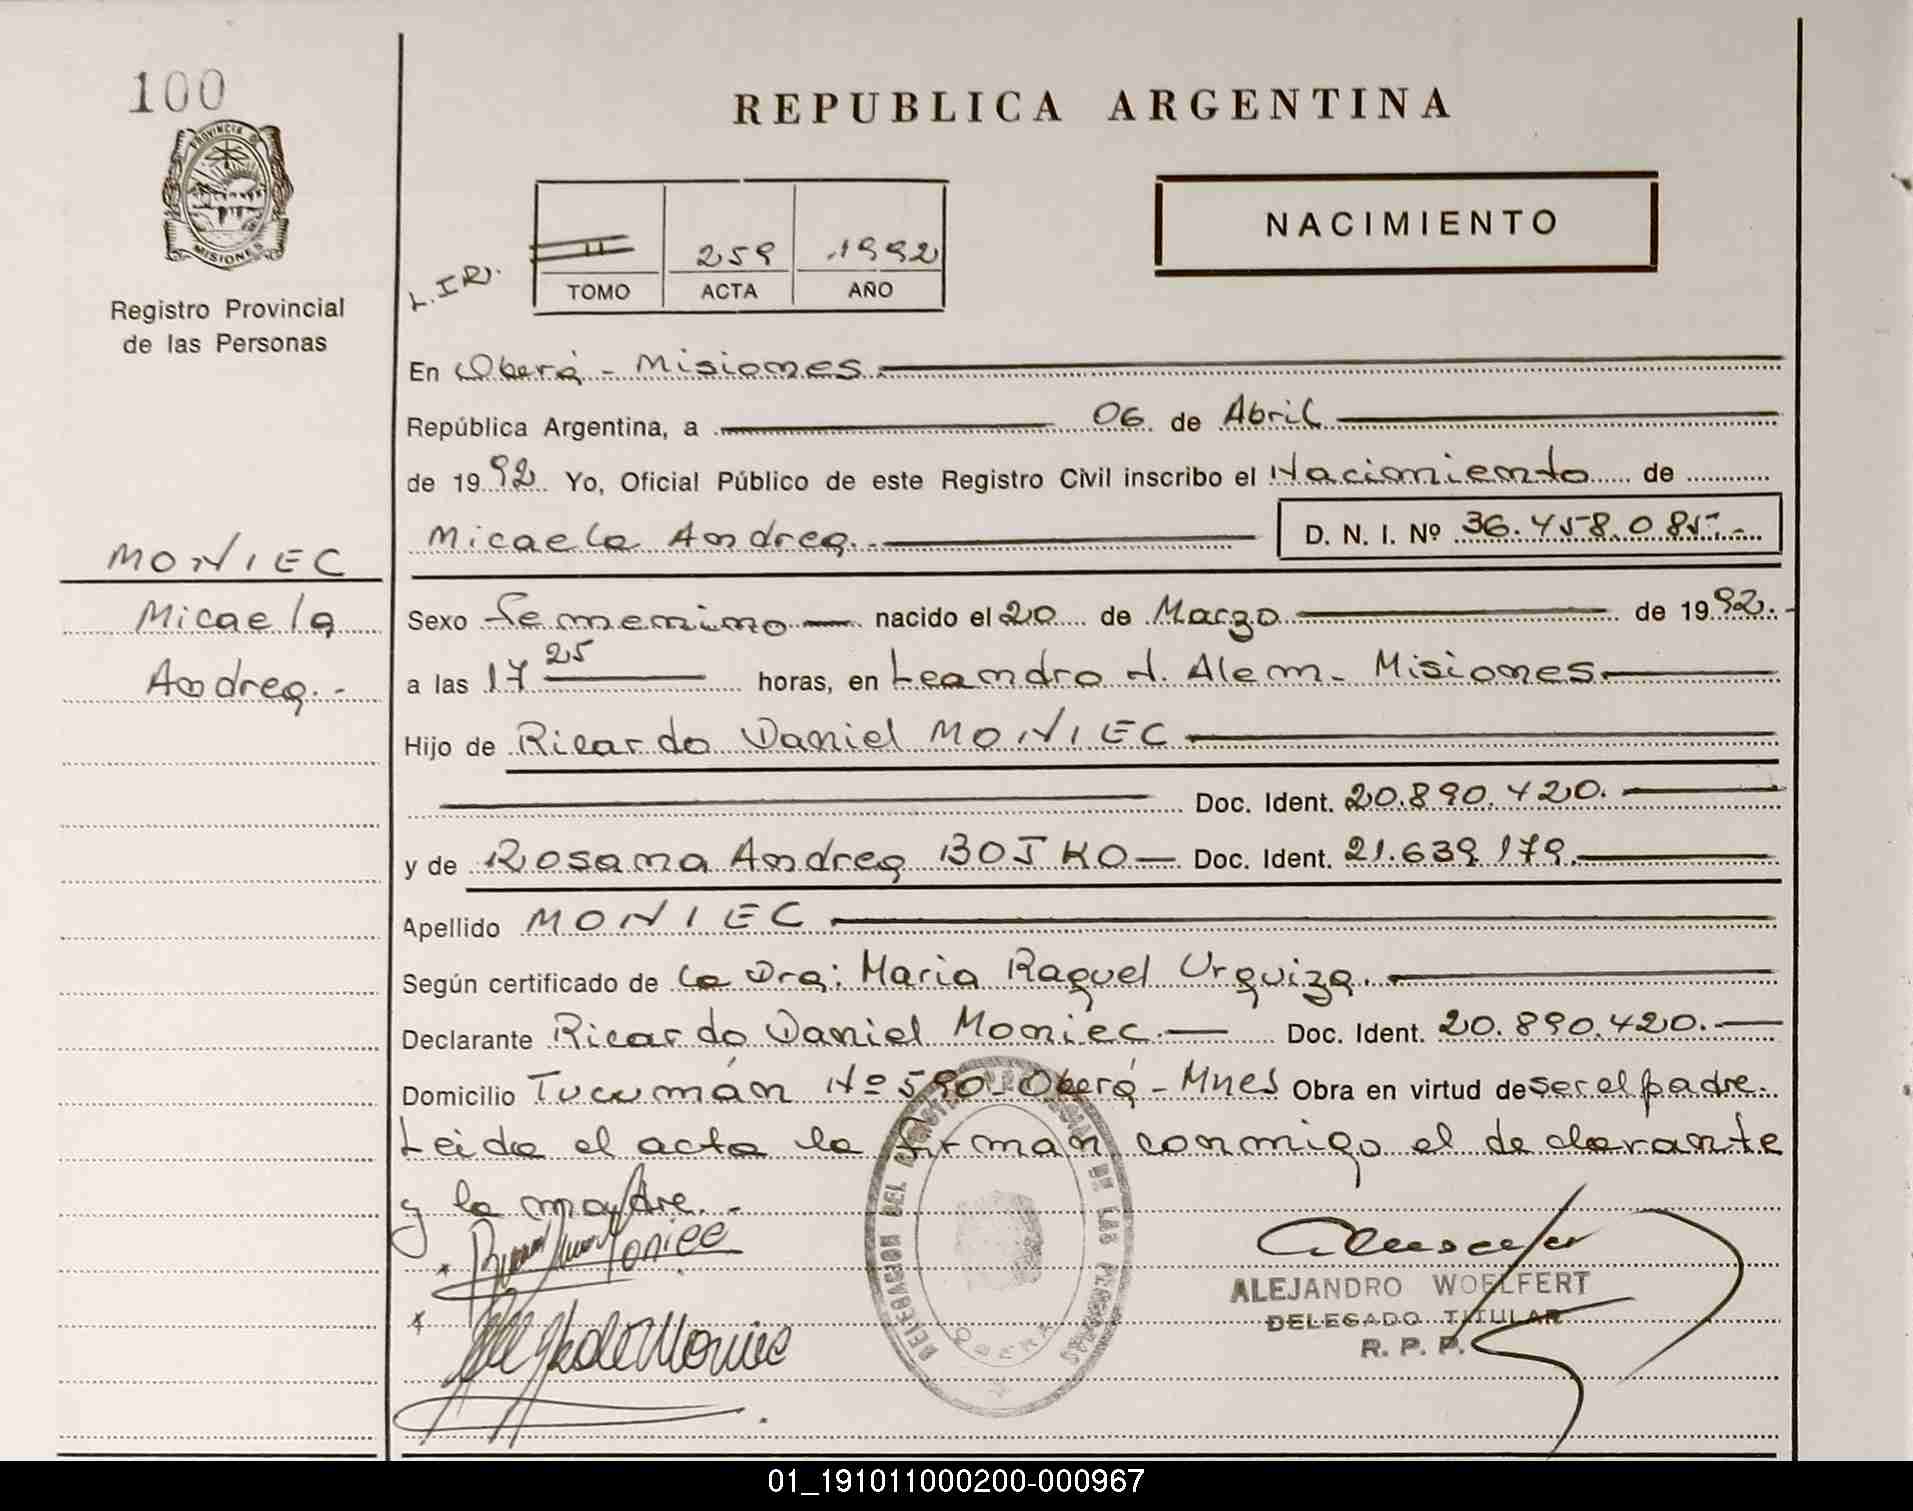 100
PROVINCIA D
MISIONES
Registro Provincial
de las Personas
MONIEC
Micaela
Andrea.-
REPUBLICA ARGENTINA
NACIMIENTO
L. I R.
II 259 1992
TOMO ACTA AÑO
En Oberá - Misiones
República Argentina, a 06 de Abril
de 1992 Yo, Oficial Público de este Registro Civil inscribo el Nacimiento de
Micaela Andrea.- D. N. I. Nº 36.458.085.-
Sexo Femenino nacido el 20 de Marzo de 1992.-
a las 17 25 horas, en Leandro N. Alem - Misiones
Hijo de Ricardo Daniel MONIEC
Doc. Ident. 20.890.420.
y de Rosana Andrea BOJKO Doc. Ident. 21.639.179.
Apellido MONIEC
Según certificado de la Dra: Maria Raquel Urquiza.
Declarante Ricardo Daniel Moniec. Doc. Ident. 20.890.420.
Domicilio Tucumán Nº 590 - Oberá - Mnes Obra en virtud de ser el padre.
Leida el acta la firman conmigo el declarante
y la madre.-
Moniec
Moniec
DELEGACION DEL REGISTRO PROVINCIAL DE LAS PERSONAS
OBERA
ALEJANDRO WOELFERT
DELEGADO TITULAR
R. P. P.
01_191011000200-000967